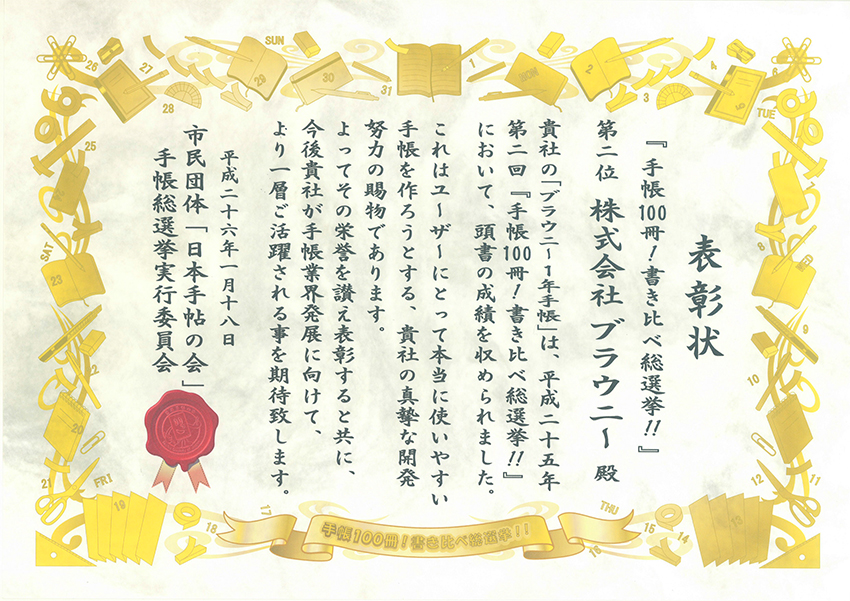 表彰状
『手帳100冊！書き比べ総選挙!!』
第二位 株式会社 ブラウニー 殿
貴社の「ブラウニー1年手帳」は、平成二十五年
第二回『手帳100冊！書き比べ総選挙!!』
において、頭書の成績を収められました。
これはユーザーにとって本当に使いやすい
手帳を作ろうとする、貴社の真摯な開発
努力の賜物であります。
よってその栄誉を讃え表彰すると共に、
今後貴社が手帳業界発展に向けて、
より一層ご活躍される事を期待致します。
平成二十六年一月十八日
市民団体「日本手帖の会」
手帳総選挙実行委員会
手帳100冊！書き比べ総選挙!!
SUN
MON
TUE
THU
FRI
SAT
1
2
3
4
6
8
9
10
11
12
13
14
15
16
17
18
19
20
21
22
23
24
25
26
27
28
29
30
31